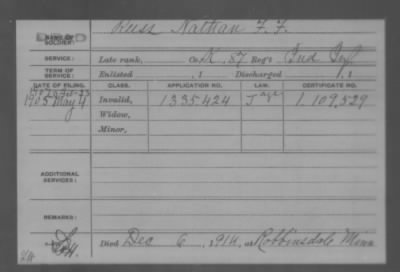 NAME OF SOLDIER: Russ Nathan F. F.
SERVICE: Late rank, Co. K, 87 Reg't Ind Inf
TERM OF SERVICE: Enlisted , 1 Discharged , 1
DATE OF FILING. CLASS. APPLICATION NO. LAW. CERTIFICATE NO.
1905 May 4 Invalid, 1335.424 J age 1.109,529
Widow,
Minor,
ADDITIONAL SERVICES:
REMARKS:
Died Dec 6, 1914, at Robbinsdale Minn